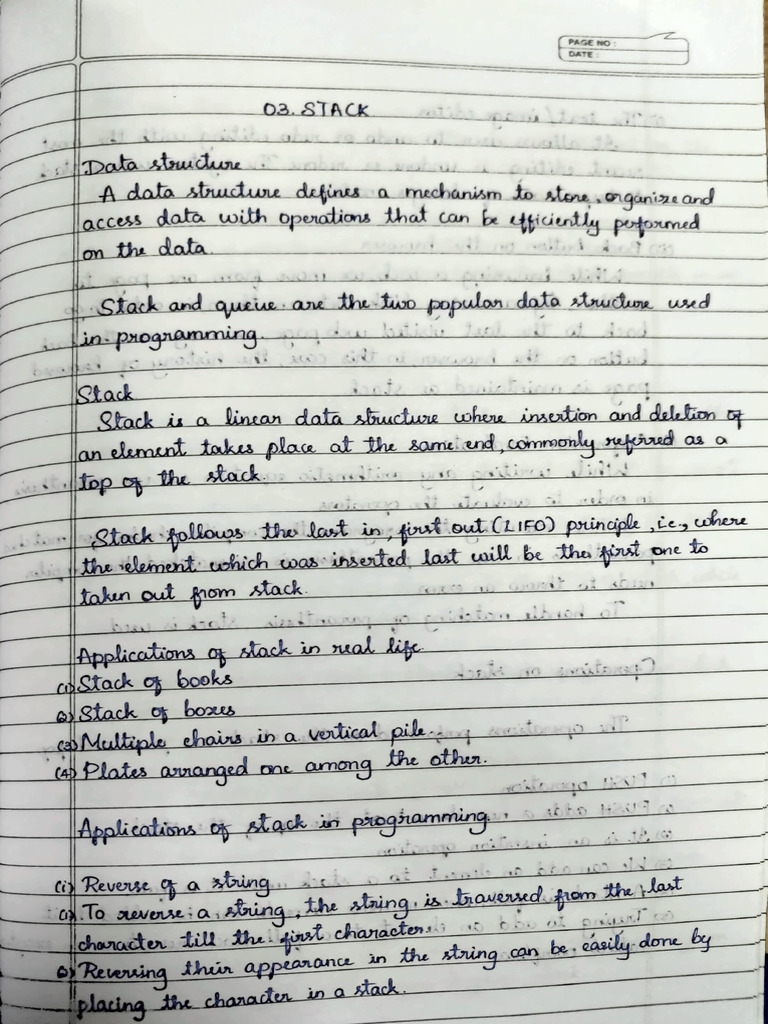 PAGE NO :
DATE :
03. STACK
Data structure
A data structure defines a mechanism to store, organize and
access data with operations that can be efficiently performed
on the data.
Stack and queue are the two popular data structure used
in programming.
Stack
Stack is a linear data structure where insertion and deletion of
an element takes place at the same end, commonly referred as a
top of the stack.
Stack follows the last in, first out (LIFO) principle, i.e., where
the element which was inserted last will be the first one to
taken out from stack.
Applications of stack in real life
(1) Stack of books
(2) Stack of boxes
(3) Multiple chairs in a vertical pile.
(4) Plates arranged one among the other.
Applications of stack in programming
(i) Reverse of a string
(1) To reverse a string, the string is traversed from the last
character till the first character.
(2) Reversing their appearance in the string can be easily done by
placing the character in a stack.